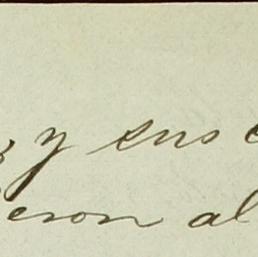 y sus
eron al